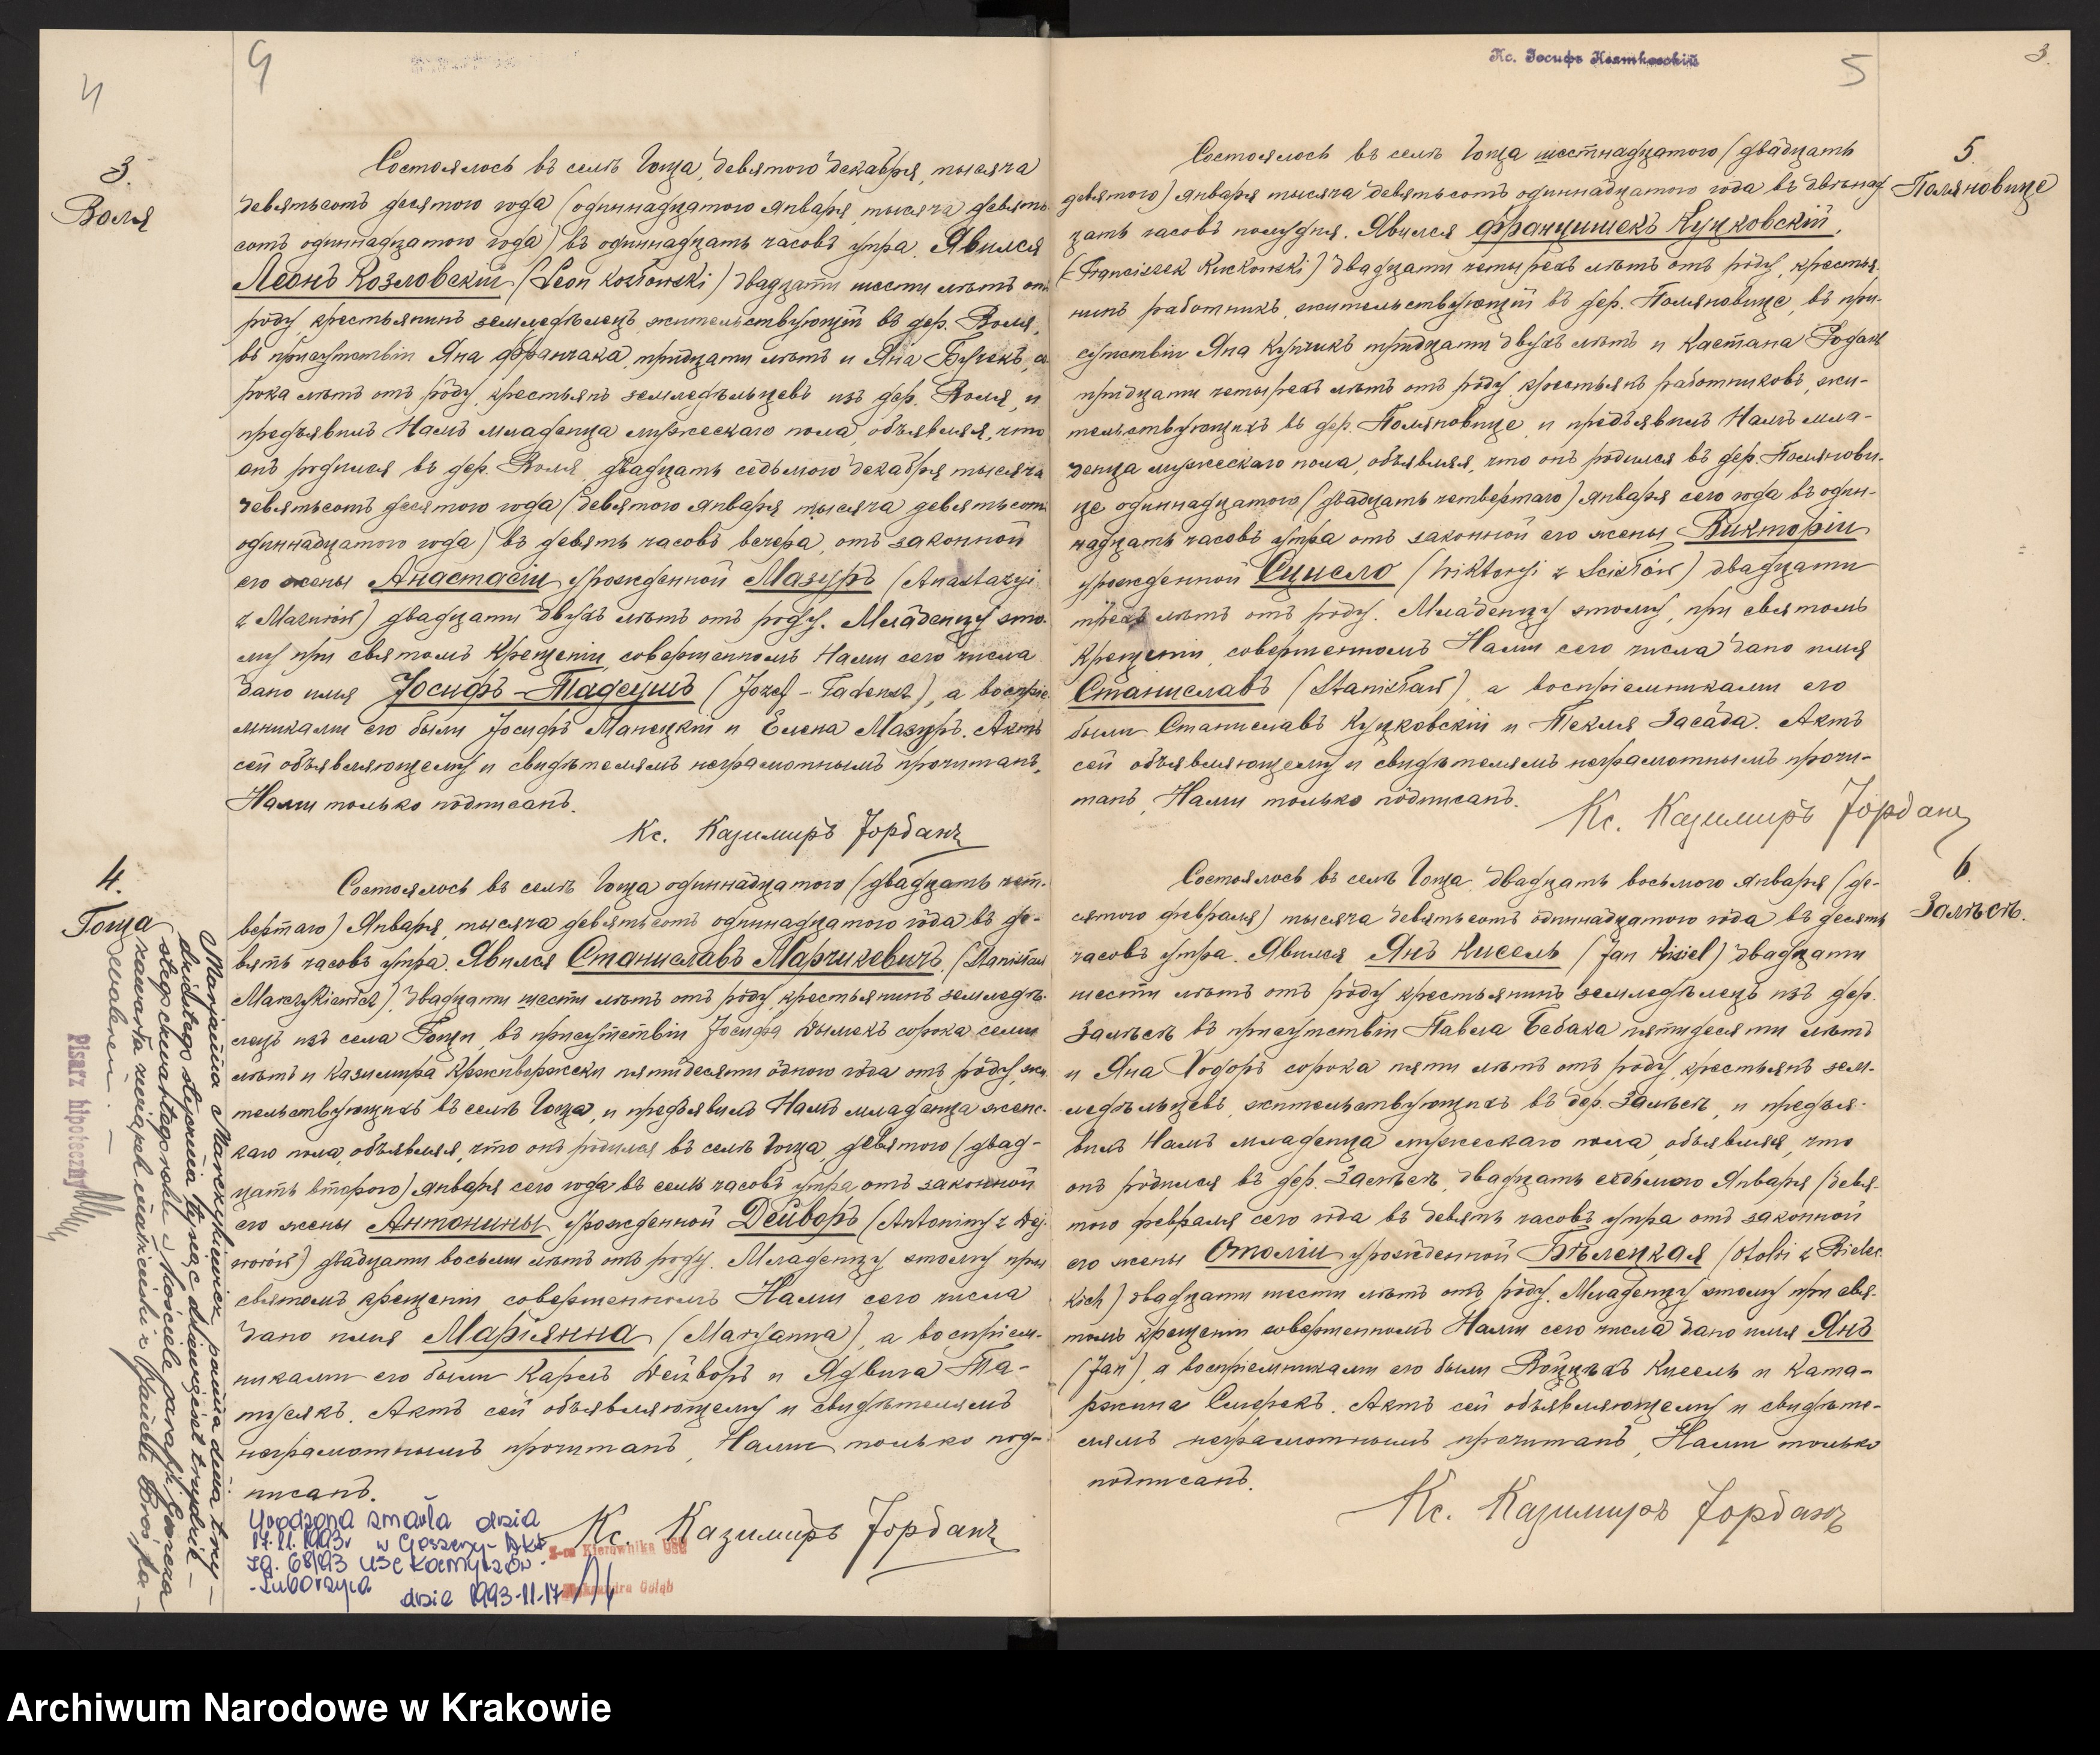 4
9
3.
Воля
Состоялось въ селѣ Гоща, девятого декабря, тысяча
девятьсотъ десятого года (одиннадцатого января тысяча девять-
сотъ одиннадцатого года) въ одиннадцать часовъ утра. Явился
Леонъ Козловскій (Leon Kozłowski) двадцати шести лѣтъ отъ
роду, крестьянинъ земледѣлецъ, жительствующій въ дер. Воля,
въ присутствіи Яна Франчака, тридцати лѣтъ и Яна Бучекъ, со
рока лѣтъ отъ роду, крестьянъ земледѣльцевъ изъ дер. Воля, и
предъявилъ Намъ младенца мужескаго пола, объявляя, что
онъ родился въ дер. Воля, двадцать седьмого декабря тысяча
девятьсотъ десятого года (девятого января тысяча девятьсотъ
одиннадцатого года) въ девять часовъ вечера, отъ законной
его жены Анастасіи урожденной Мазуръ (Anastazyi
z Mazurów) двадцати двухъ лѣтъ отъ роду. Младенцу это-
му при святомъ Крещеніи, совершенномъ Нами сего числа
дано имя Іосифъ-Тадеушъ (Józef-Tadeusz), а воспріе
мниками его были Іосифъ Манецкій и Елена Мазуръ. Актъ
сей объявляющему и свидѣтелямъ неграмотнымъ прочитанъ,
Нами только подписанъ.
Кс. Казимиръ Іорданъ
4.
Гоща
Состоялось въ селѣ Гоща одиннадцатого (двадцать чет-
вертаго) Января, тысяча девятьсотъ одиннадцатого года въ де-
вять часовъ утра. Явился Станиславъ Марчикевичъ (Stanisław
Marczykiewicz), двадцати шести лѣтъ отъ роду, крестьянинъ земледѣ-
лецъ изъ села Гощи, въ присутствіи Іосифа Дымекъ сорока семи
лѣтъ и Казимира Крживоржеки пятидесяти одного года отъ роду, жи-
тельствующихъ въ селѣ Гоща, и предъявилъ Намъ младенца женс-
каго пола, объявляя, что онъ родился въ селѣ Гоща, девятого (двад-
цать второго) января сего года въ семь часовъ утра, отъ законной
его жены Антонины урожденной Дейворъ (Antoniny z Dej-
worów) двадцати восьми лѣтъ отъ роду. Младенцу этому при
святомъ крещеніи, совершенномъ Нами сего числа
дано имя Маріянна (Maryanna), а воспріем-
никами его были Кароль Дейворъ и Ядвига Та-
тусякъ. Актъ сей объявляющему и свидѣтелямъ
неграмотнымъ прочитанъ, Нами только под-
писанъ.
Кс. Казимиръ Іорданъ
Marjanna Marczykiewicz panna dnia trzy-
dziestego stycznia tysiąc dziewięćset trzydzie-
stego czwartego roku w kościele parafii Goszcza
zawarła związek małżeński z
Pisarz hipoteczny
Urodzona zmarła dnia
17.11.1993r w Goszczy- Akt
zg. 68/93 USC Kocmyrzów-
-Luborzyca
dnia 1993-11-17
Z-ca Kierownika USC
Gołąb
Кс. Іосифъ
5
3.
5.
Поляновице
Состоялось въ селѣ Гоща шестнадцатого (двадцать
девятого) января тысяча девятьсотъ одиннадцатого года въ двѣнад-
цать часовъ полудня. Явился Францишекъ Куцковскій,
(Franciszek Kuckowski) двадцати четырехъ лѣтъ отъ роду, крестья-
нинъ работникъ, жительствующій въ дер. Поляновице, въ при-
сутствіи Яна Купчикъ тридцати двухъ лѣтъ и Каетана Родакъ
тридцати четырехъ лѣтъ отъ роду, крестьянъ работниковъ, жи-
тельствующихъ въ дер. Поляновице, и предъявилъ Намъ мла-
денца мужескаго пола, объявляя, что онъ родился въ дер. Поляниови-
це одиннадцатого (двадцать четвертаго) января сего года въ один-
надцать часовъ утра отъ законной его жены Викторіи
урожденной Сцисло (Wiktoryi z Ścisłów) двадцати
трехъ лѣтъ отъ роду. Младенцу этому, при святомъ
Крещеніи, совершенномъ Нами сего числа дано имя
Станиславъ (Stanisław), а воспріемниками его
были Станиславъ Куцковскій и Текля Засада. Актъ
сей объявляющему и свидѣтелямъ неграмотнымъ прочи-
танъ, Нами только подписанъ.
Кс. Казимиръ Іорданъ
6.
Залѣсѣ.
Состоялось въ селѣ Гоща, двадцать восьмого января (де-
сятого февраля) тысяча девятьсотъ одиннадцатого года въ десять
часовъ утра. Явился Янъ Кисель (Jan Kisiel) двадцати
шести лѣтъ отъ роду крестьянинъ земледѣлецъ изъ дер.
Залѣсѣ въ присутствіи Павла Бебака пятидесяти лѣтъ
и Яна Ходоръ сорока пяти лѣтъ отъ роду, крестьянъ зем-
ледѣльцевъ, жительствующихъ въ дер. Залѣсѣ, и предъя-
вилъ Намъ младенца мужескаго пола, объявляя, что
онъ родился въ дер. Залѣсѣ, двадцать седьмого Января (девя-
того февраля) сего года въ девять часовъ утра отъ законной
его жены Отоліи урожденной Бѣлецкая (Otolii z Bielec
kich) двадцати шести лѣтъ отъ роду. Младенцу этому при свя-
томъ крещеніи совершенномъ Нами сего числа дано имя Янъ
(Jan), а воспріемниками его были Войцѣхъ Кисель и Ката-
ржина Смерекъ. Актъ сей объявляющему и свидѣте-
лямъ неграмотнымъ прочитанъ, Нами только
подписанъ.
Кс. Казимиръ Іорданъ
Archiwum Narodowe w Krakowie